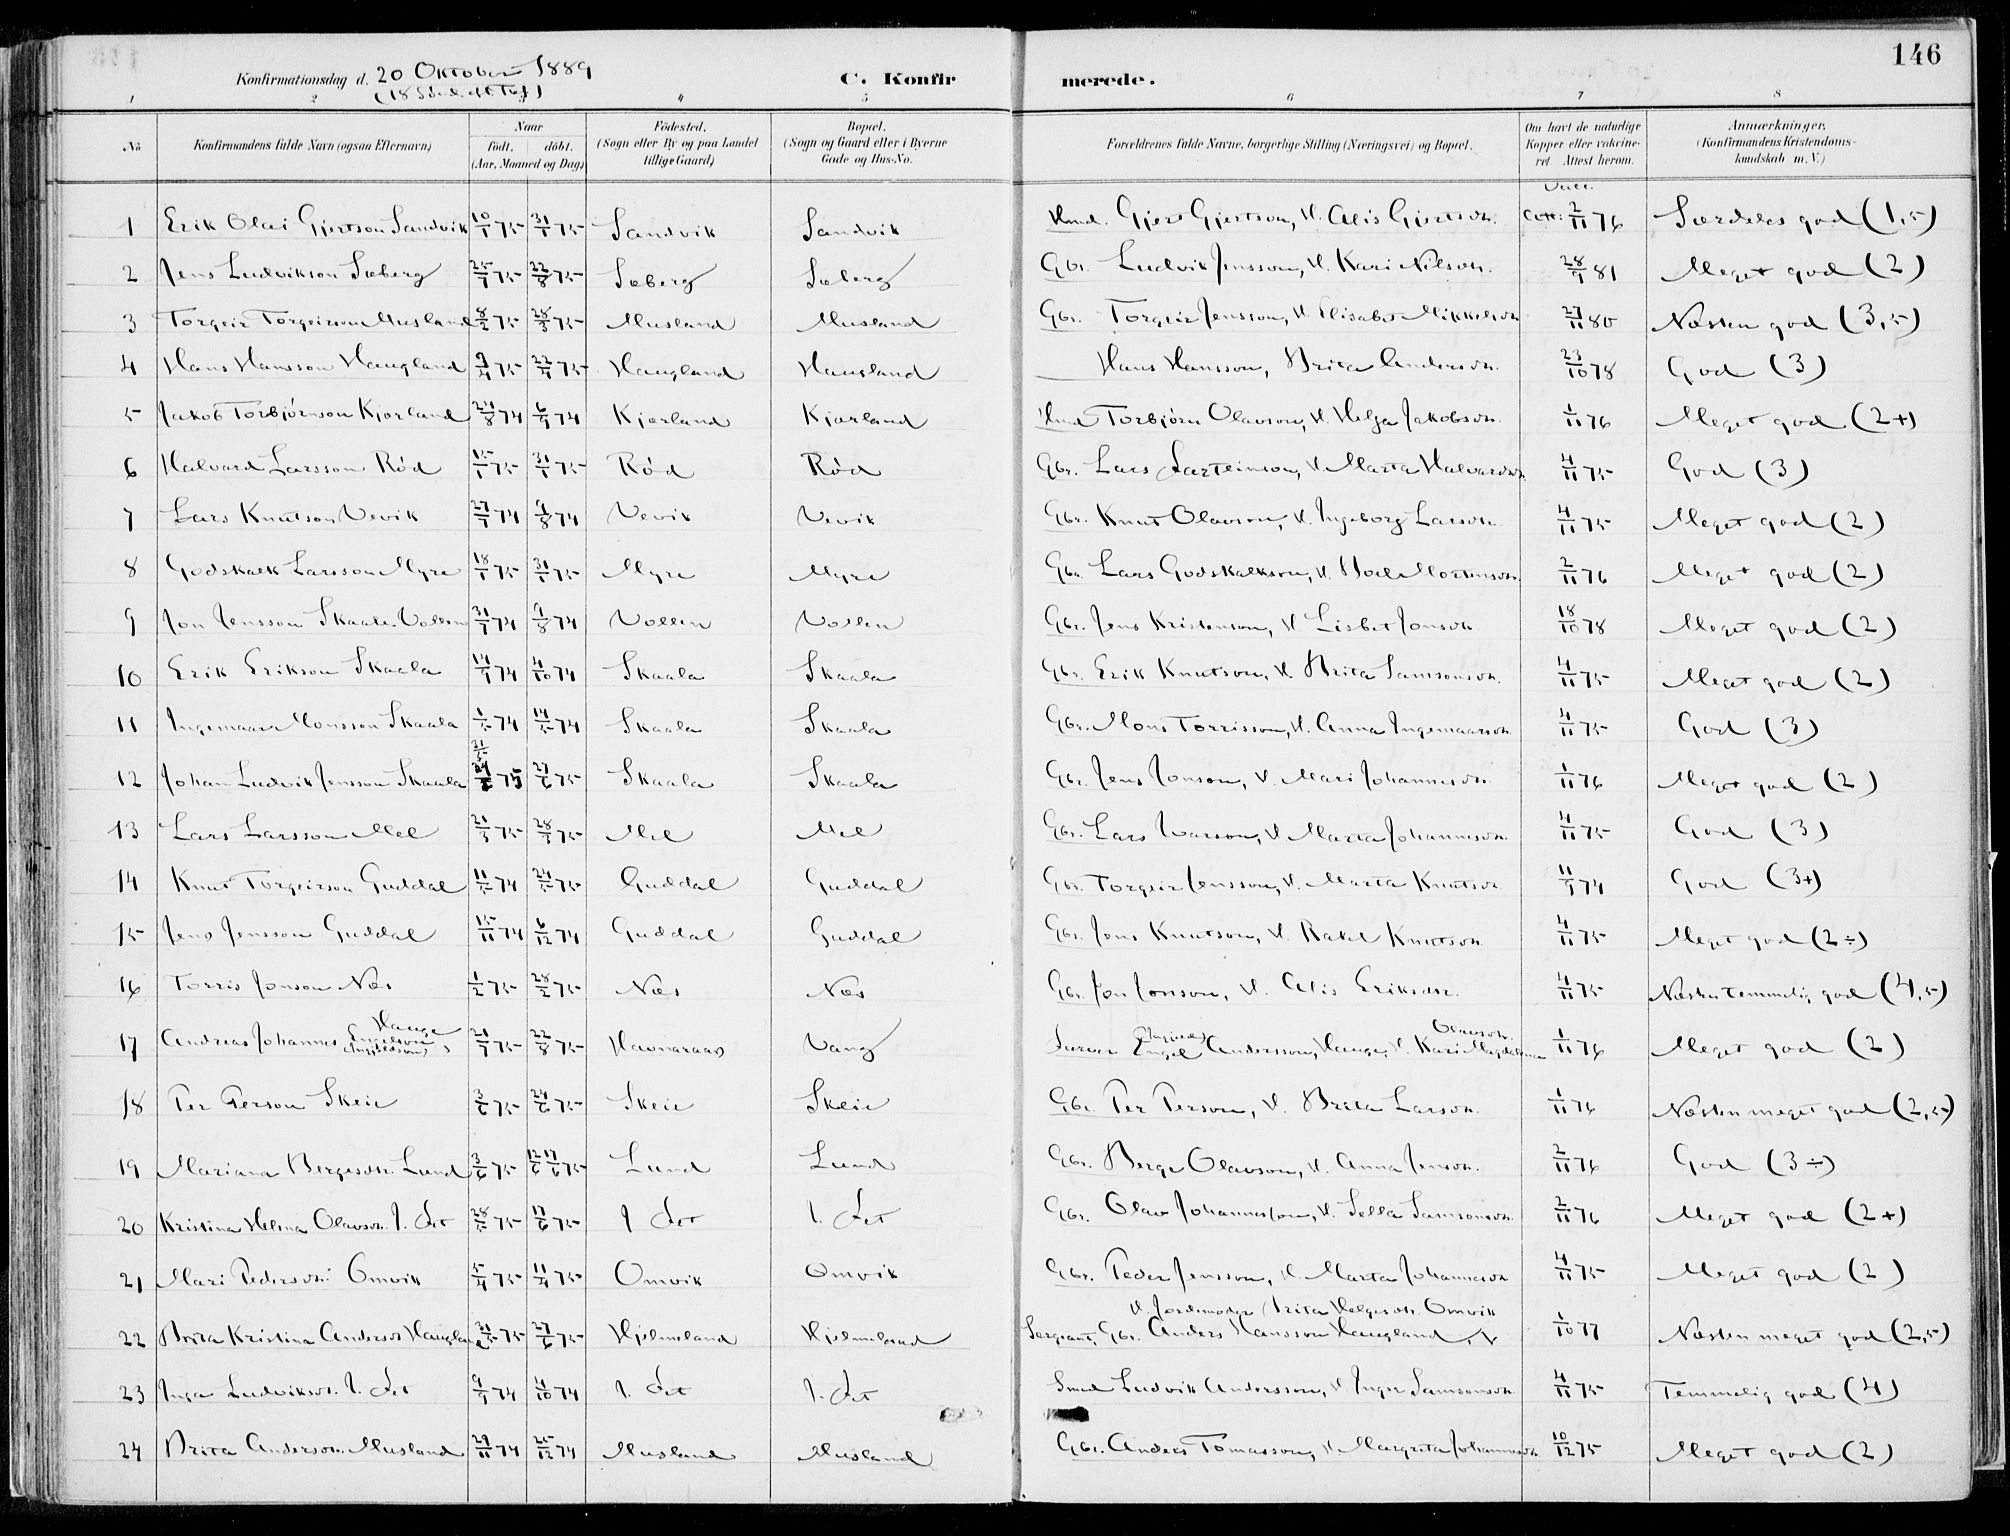 146
Konfirmationsdag d. 20 Oktober 1889
C. Konfirmerede.
1 2 3 4 5 6 7 8
No
Konfirmandens fulde Navn (ogsaa Efternavn)
Naar
født. døbt.
(Aar, Maaned og Dag)
Fødested.
(Sogn eller By og paa Landet tillige Gaard)
Bopæl.
(Sogn og Gaard eller i Byerne Gade og Hus-No.
Forældrenes fulde Navne, borgerlige Stilling (Næringsvei) og Bopæl.
Om havt de naturlige Kopper eller vakcineret. Attest herom.
Anmærkninger.
(Konfirmandens Kristendomskundskab m. V.)
1 Erik Olai Gjertson Sandvik 10/1 75 31/1 75 Sandvik Sandvik Hmd. Gjert Gjertson, H. Alis Gjertsdtr. 2/11 76 Særdeles god (1,5)
2 Jens Ludvikson Seberg 25/7 75 22/8 75 Seberg Seberg Gbr. Ludvik Jensson, H. Kari Nilsdtr. 28/9 81 Meget god (2)
3 Torgeir Torgeirson Musland 8/2 75 28/3 75 Musland Musland Gbr. Torgeir Jensson, H. Elisabet Mikkelsdtr. 27/11 80 Næsten god (3,5)
4 Hans Hansson Haugland 75 75 Haugland Haugland Hans Hansson, Brita Andersdtr. 23/10 78 God (3)
5 Jakob Torbjörnson Kjærland 24/8 74 6/9 74 Kjærland Kjærland Hmd Torbjörn Olavson, H. Helga Jakobsdtr. 1/11 76 Meget god (2+)
6 Halvard Larsson Rød 15/1 75 31/1 75 Rød Rød Gbr. Lars H. Marta Halvardsdtr. 4/11 75 God (3)
7 Lars Knutson Vevik 27/7 74 9/8 74 Vevik Vevik Gbr. Knut Olavson, H. Ingeborg Larsdtr. 4/11 75 Meget god (2)
8 Godskalk Larsson Myre 18/1 75 31/1 75 Myre Myre Gbr. Lars Godskalkson, H. Boel Mortensdtr. 2/11 76 Meget god (2)
9 Jon Jensson Skaale-Vollen 31/7 74 9/8 74 Vollen Vollen Gbr. Jens Kristenson, H. Lisbet Jonsdtr. 18/10 78 Meget god (2)
10 Erik Erikson Skaala 14/9 74 4/10 74 Skaala Skaala Gbr. Erik Knutson, H. Brita Samsonsdtr. 4/11 75 Meget god (2)
11 Ingemaar Monsson Skaala 1/5 74 14/5 74 Skaala Skaala Gbr. Mons Torrisson, H. Anna Ingemaarsdtr. 4/11 75 God (3)
12 Johan Ludvik Jensson Skaala 31/5 75 27/6 75 Skaala Skaala Gbr. Jens Jonson, H. Mari Johannesdtr. 1/11 76 Meget god (2)
13 Lars Larsson Mel 21/3 75 28/3 75 Mel Mel Gbr. Lars Ivarson, H. Marta Johannesdtr. 4/11 75 God (3)
14 Knut Torgeirson Guddal 11/5 74 24/5 75 Guddal Guddal Gbr. Torgeir Jensson, H. Marta Knutsdtr. 11/9 74 God (3+)
15 Jens Jensson Guddal 15/11 74 6/12 74 Guddal Guddal Gbr. Jens Knutson, H. Rakel Knutsdtr. 4/11 75 Meget god (2÷)
16 Torris Jonson Næs 1/2 75 28/2 75 Næs Næs Gbr. Jon Jonson, H. Alis Eriksdtr. 4/11 75 Næsten temmelig god (4,5)
17 Andreas Johannes Engelson Hauge 21/7 75 22/8 75 Havnaraas Vang Engel Andersson Hauge, H. Kari Magdalena Olavsdtr. 1/11 76 Meget god (2)
18 Per Person Skeie 3/6 75 24/6 75 Skeie Skeie Gbr. Per Person, H. Brita Larsdtr. 1/11 76 Næsten meget god (2,5)
19 Mariana Bergesdtr. Lund 3/6 75 12/6 17/6 75 Lund Lund Gbr. Berge Olavson, H. Anna Jensdtr. 2/11 76 God (3÷)
20 Kristina Helena Olavsdtr. 28/5 75 17/6 75 Gbr. Olav Johannesson, H. Sella Samsonsdtr. 2/11 76 Meget god (2+)
21 Mari Pedersdtr. Omvik 5/4 75 11/4 75 Omvik Omvik Gbr. Peder Jensson, H. Marta Johannesdtr. 4/11 75 Meget god (2)
H. Jordmoder Brita Helgesdtr. Omvik
22 Brita Kristina Andersd. Haugland 31/5 75 27/6 75 Hjelmeland Hjelmeland Sergeant, Gbr. Anders Hansson Haugland, 1/10 77 Næsten meget god (2,5)
23 Inga Ludviksdtr. 9/9 74 4/10 74 Smed Ludvik Andersson, H. Inger Samsonsdtr. 4/11 75 Temmelig god (4)
24 Brita Andersdtr. Musland 29/11 74 25/12 74 Musland Musland Gbr. Anders Tomasson, H. Margreta Johannesdtr. 10/12 75 Meget god (2)